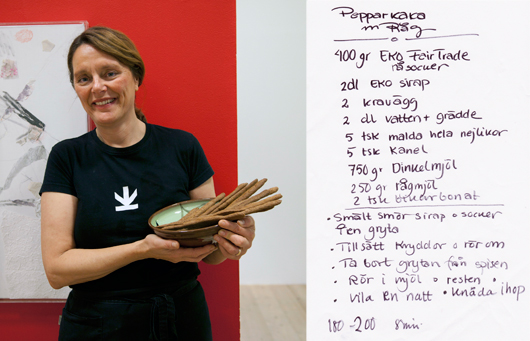 Pepparkaka
m Råg
400 gr EKO Fair Trade
råsocker
2dl EKO sirap
2 kravägg
2 dl vatten + grädde
5 tsk malda hela nejlikor
5 tsk Kanel
750 gr Dinkelmjöl
250 gr rågmjöl
2 tsk bikarbonat
• Smält smör sirap o socker
i en gryta
• Tillsätt Kryddor o rör om
• Ta bort grytan från spisen
• Rör i mjöl o resten
• Vila En natt • Knåda ihop
180-200 8 min